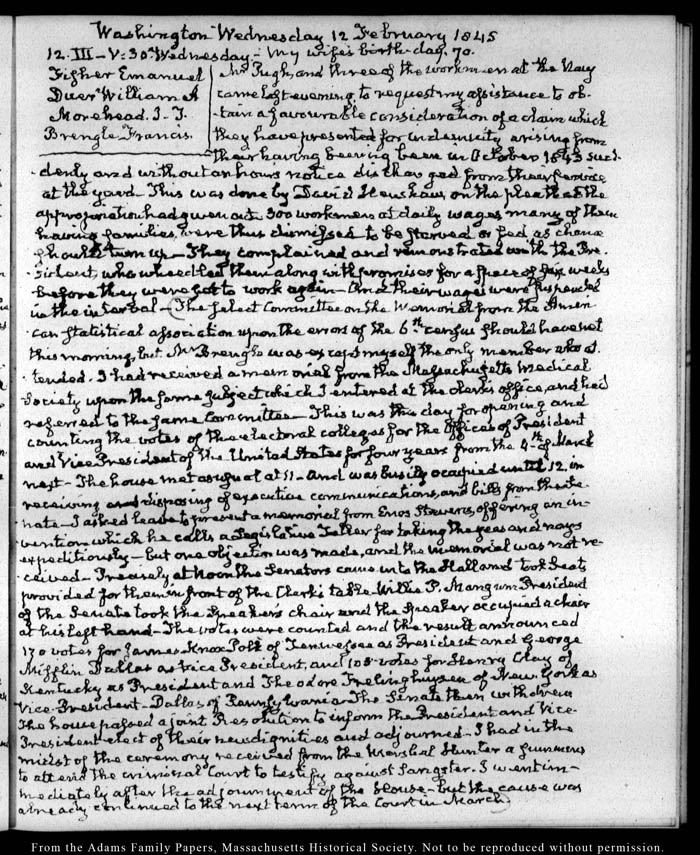 Washington Wednesday 12 February 1845
12. III – V:30. Wednesday – My wife's birth-day. 70.
Fisher Emanuel
Duer William A
Morehead. J. T.
Brengle Francis.
Mr Pugh, and three of the workmen at the Navy
came last evening to request my assistance to ob-
tain a favourable consideration of a claim which
they have presented for indemnity arising from
their having been in October 1843 sud-
denly and without an hours notice discharged from their service
at the yard. This was done by David Henshaw, on the plea that the
appropriation had given out. 300 workmen at daily wages many of them
having families, were thus dismissed to be starved or fed as chance
should turn up – They complained and remonstrated with the Pre-
sident, who wheedled them along with promises for a space of six weeks
before they were got to work again – And their wages were suspended
in the interval – The select Committee on the Memorial from the Ameri-
can Statistical association upon the errors of the 6th census should have met
this morning, but Mr Brengle was except myself the only member who at-
tended. I had received a memorial from the Massachusetts Medical
Society upon the same subject which I entered at the clerk's office, and had
referred to the same Committee – This was the day for opening and
counting the votes of the electoral colleges for the Offices of President
and Vice President of the United States for four years from the 4th of March
next – The house met as usual at 11 – And was busily occupied until 12, in
receiving and disposing of executive communications, and bills from the Se-
nate – I asked leave to present a memorial from Enos Stevens, offering an in-
vention which he calls a Legislative Teller for taking the yeas and nays
expeditiously – but one objection was made, and the memorial was not re-
ceived – Precisely at Noon the Senators came into the Hall and took seats
provided for them in front of the Clerk's table – Willie P. Mangum President
of the Senate took the Speaker's chair and the Speaker occupied a chair
at his left hand – The votes were counted and the result announced
170 votes for James Knox Polk of Tennessee as President and George
Mifflin Dallas as Vice President, and 105 votes for Henry Clay of
Kentucky as President and Theodore Frelinghuysen of New York as
Vice-President – Dallas of Pennsylvania – The Senate then withdrew
The house passed a joint Resolution to inform the President and Vice-
President elect of their new dignities and adjourned – I had in the
midst of the ceremony received from the Marshal Hunter a summons
to attend the criminal Court to testify against Sangster. I went im-
mediately after the adjournment of the House – but the cause was
already continued to the next term of the Court in March
From the Adams Family Papers, Massachusetts Historical Society. Not to be reproduced without permission.